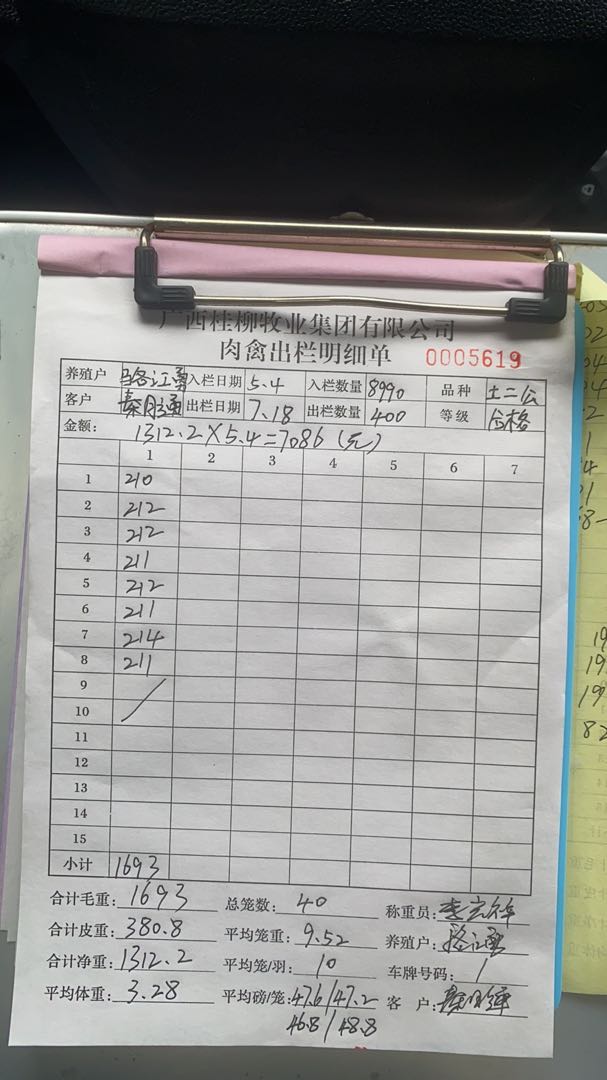 广西桂柳牧业集团有限公司
肉禽出栏明细单 0005619
养殖户 入栏日期 5.4 入栏数量 8990 品种 土二公
客户 出栏日期 7.18 出栏数量 400 等级 合格
金额: 1312.2×5.4=7086(元)
1 2 3 4 5 6 7
1 210
2 212
3 212
4 211
5 212
6 211
7 214
8 211
9
10
11
12
13
14
15
小计 1693
合计毛重: 1693 总笼数: 40 称重员:
合计皮重: 380.8 平均笼重: 9.52 养殖户:
合计净重: 1312.2 平均笼/羽: 10 车牌号码: /
平均体重: 3.28 平均磅/笼: 47.6/47.2 客 户:
46.8/48.8